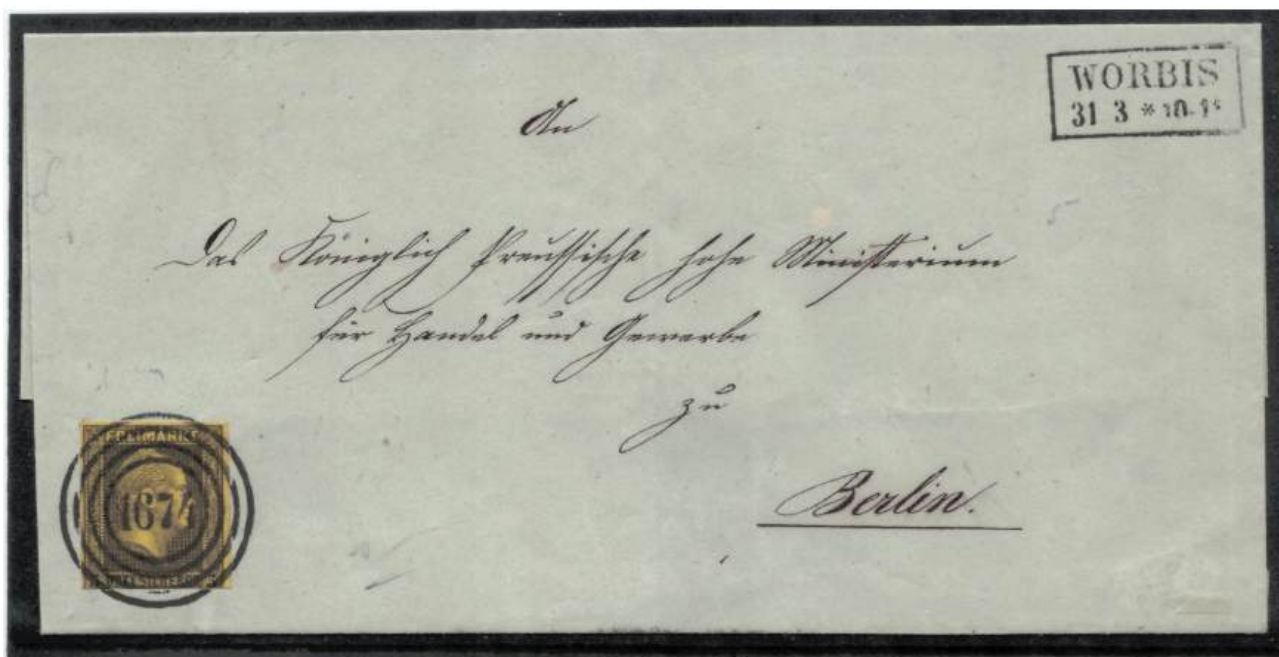 WORBIS
31 3 * 10-11
An
Das Königlich Preussische hohe Ministerium
für Handel und Gewerbe
zu
Berlin.
FREIMARKE
1674
SILBERGR